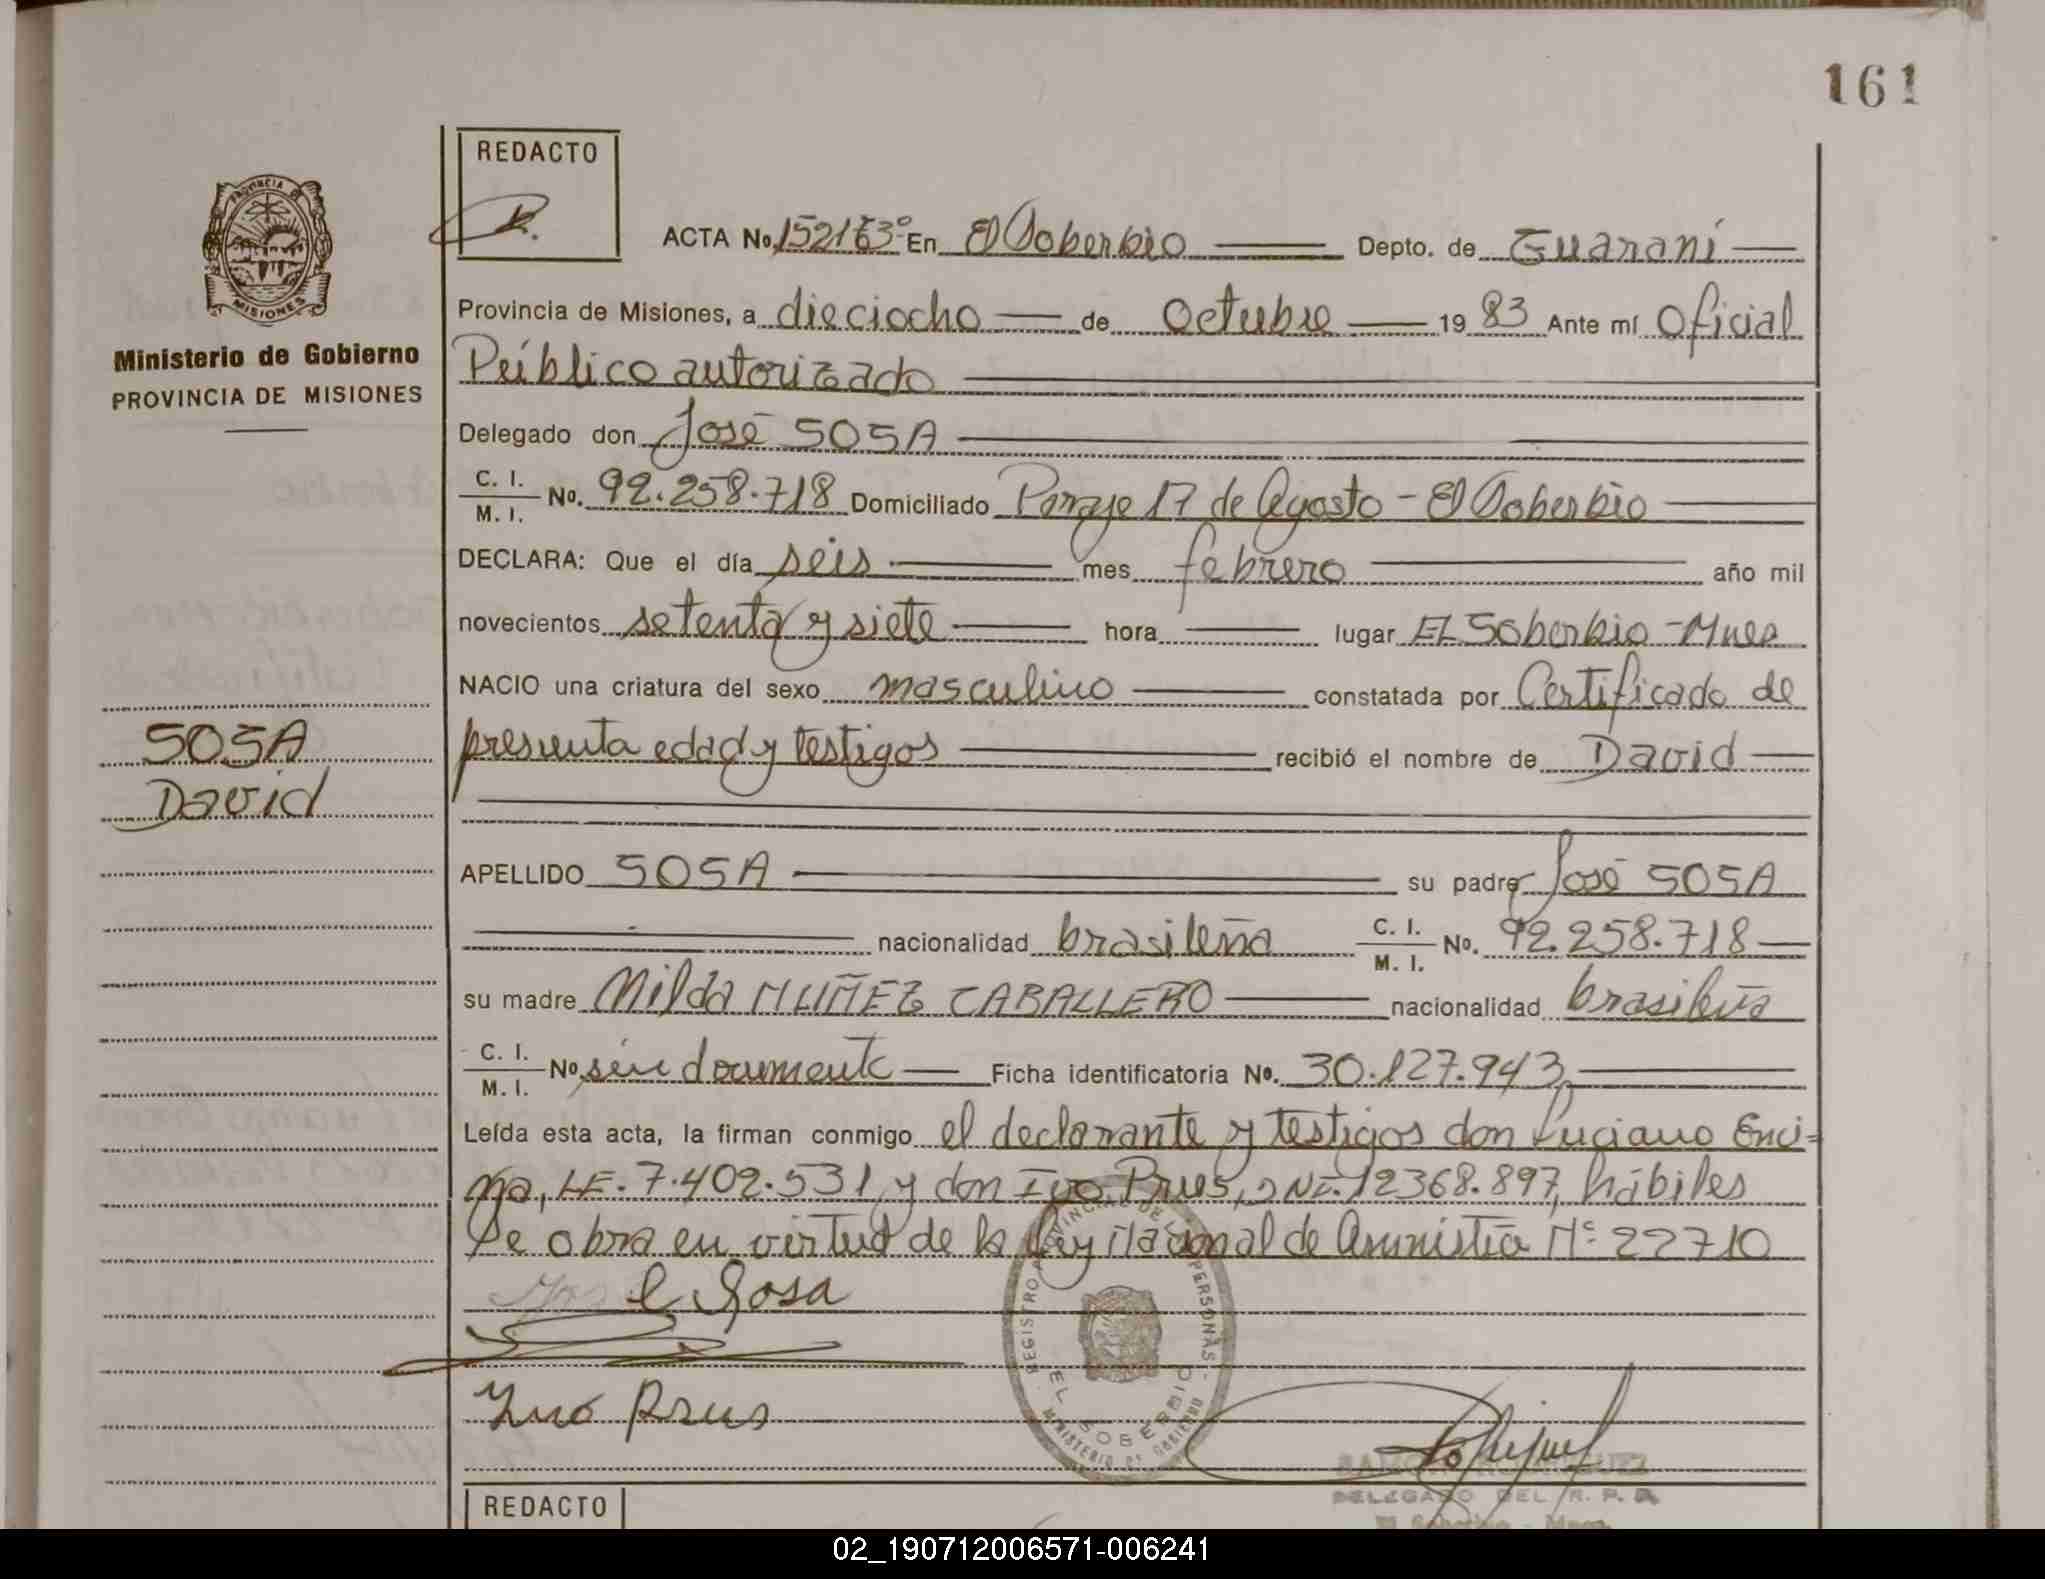 161
REDACTO
PROVINCIA DE
MISIONES
Ministerio de Gobierno
PROVINCIA DE MISIONES
SOSA
David
ACTA No. 152163º En El Soberbio Depto. de Guaraní
Provincia de Misiones, a dieciocho de Octubre 19 83 Ante mí Oficial
Público autorizado
Delegado don José SOSA
C. I.
M. I. No. 92.258.718 Domiciliado Paraje 17 de Agosto - El Soberbio
DECLARA: Que el día seis mes febrero año mil
novecientos setenta y siete hora lugar EL Soberbio - Mnes
NACIO una criatura del sexo masculino constatada por Certificado de
presunta edad y testigos recibió el nombre de David
APELLIDO SOSA su padre José SOSA
nacionalidad brasileña C. I.
M. I. No. 92.258.718
su madre Nilda NUÑEZ CABALLERO nacionalidad brasileña
C. I.
M. I. No. sin documento Ficha identificatoria No. 30.127.943
Leída esta acta, la firman conmigo el declarante y testigos don Luciano Enci=
na, LE. 7.402.531 y don Ivo Prus, DNI. 12368.897, hábiles
Se obra en virtud de la Ley Nacional de Amnistía Nº 22710
José Sosa
Ivo Prus
REGISTRO PROVINCIAL DE LAS PERSONAS
EL SOBERBIO
MINISTERIO DE GOBIERNO
DELEGADO DEL R. P. P.
El Soberbio - Mnes.
REDACTO
02_190712006571-006241